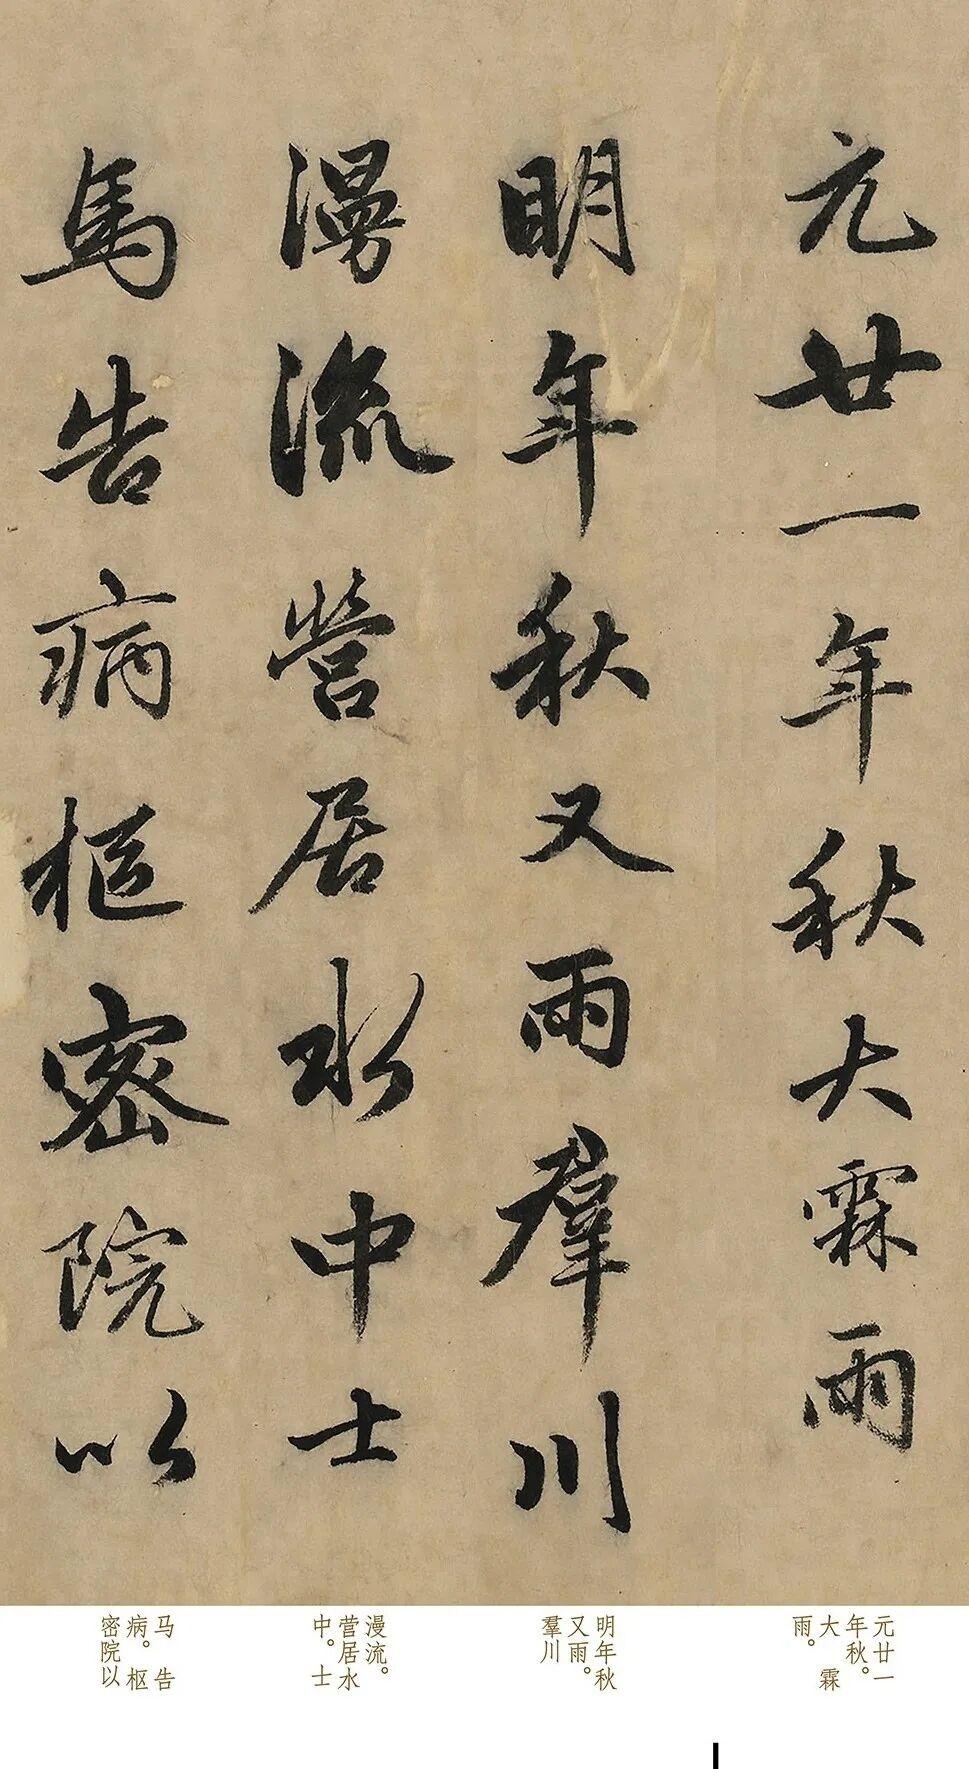 元廿一年秋大霖雨
明年秋又雨羣川
漫流營居水中士
馬告病樞密院以
元廿一
年秋。
大霖
雨。
明年秋
又雨。
羣川
漫流。
营居水
中。士
马告
病。枢
密院以